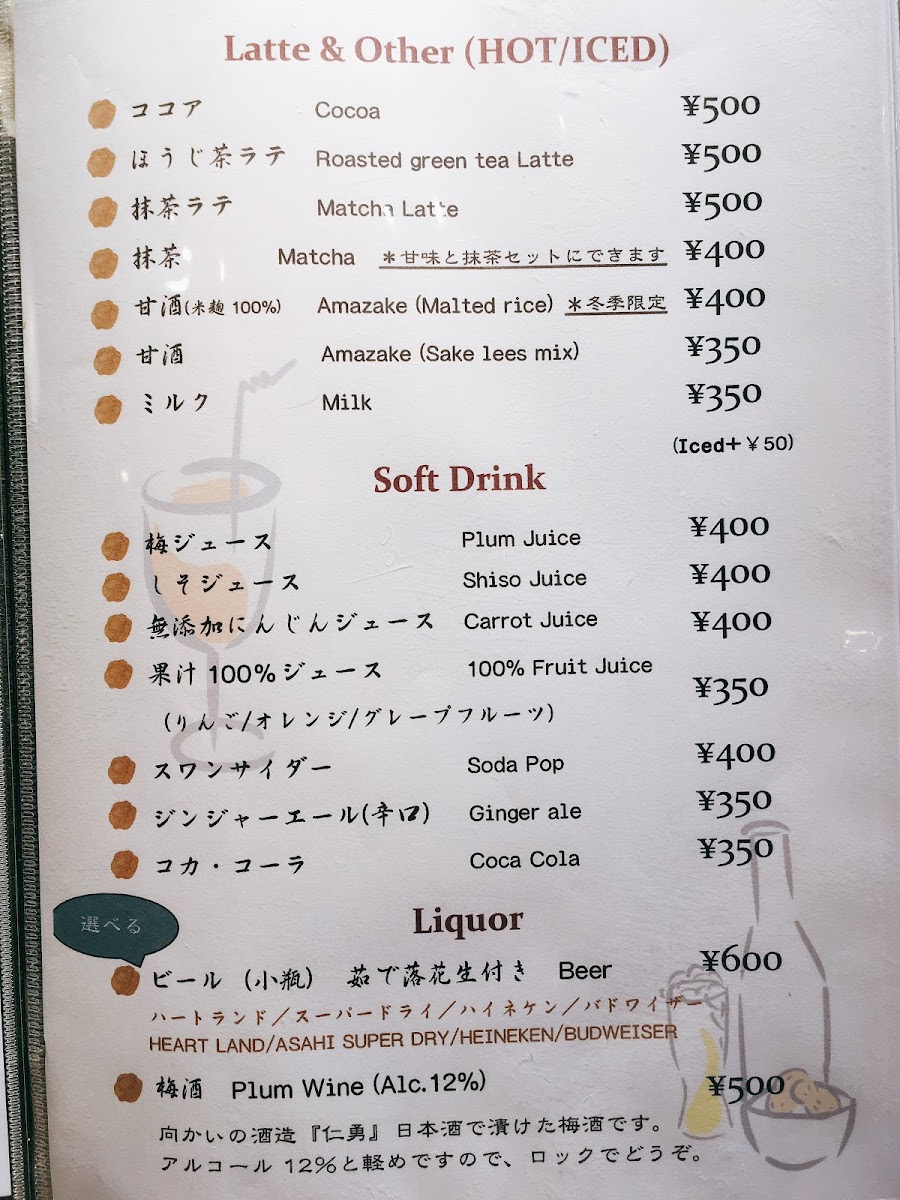 Latte & Other (HOT/ICED)
ココア Cocoa ¥500
ほうじ茶ラテ Roasted green tea Latte ¥500
抹茶ラテ Matcha Latte ¥500
抹茶 Matcha ＊甘味と抹茶セットにできます ¥400
甘酒(米麹 100%) Amazake (Malted rice) ＊冬季限定 ¥400
甘酒 Amazake (Sake lees mix) ¥350
ミルク Milk ¥350
(Iced+￥50)
Soft Drink
梅ジュース Plum Juice ¥400
しそジュース Shiso Juice ¥400
無添加にんじんジュース Carrot Juice ¥400
果汁 100%ジュース 100% Fruit Juice ¥350
(りんご/オレンジ/グレープフルーツ)
スワンサイダー Soda Pop ¥400
ジンジャーエール(辛口) Ginger ale ¥350
コカ・コーラ Coca Cola ¥350
Liquor
選べる
ビール (小瓶) 茹で落花生付き Beer ¥600
ハートランド／スーパードライ／ハイネケン／バドワイザー
HEART LAND/ASAHI SUPER DRY/HEINEKEN/BUDWEISER
梅酒 Plum Wine (Alc.12%) ¥500
向かいの酒造『仁勇』日本酒で漬けた梅酒です。
アルコール 12%と軽めですので、ロックでどうぞ。